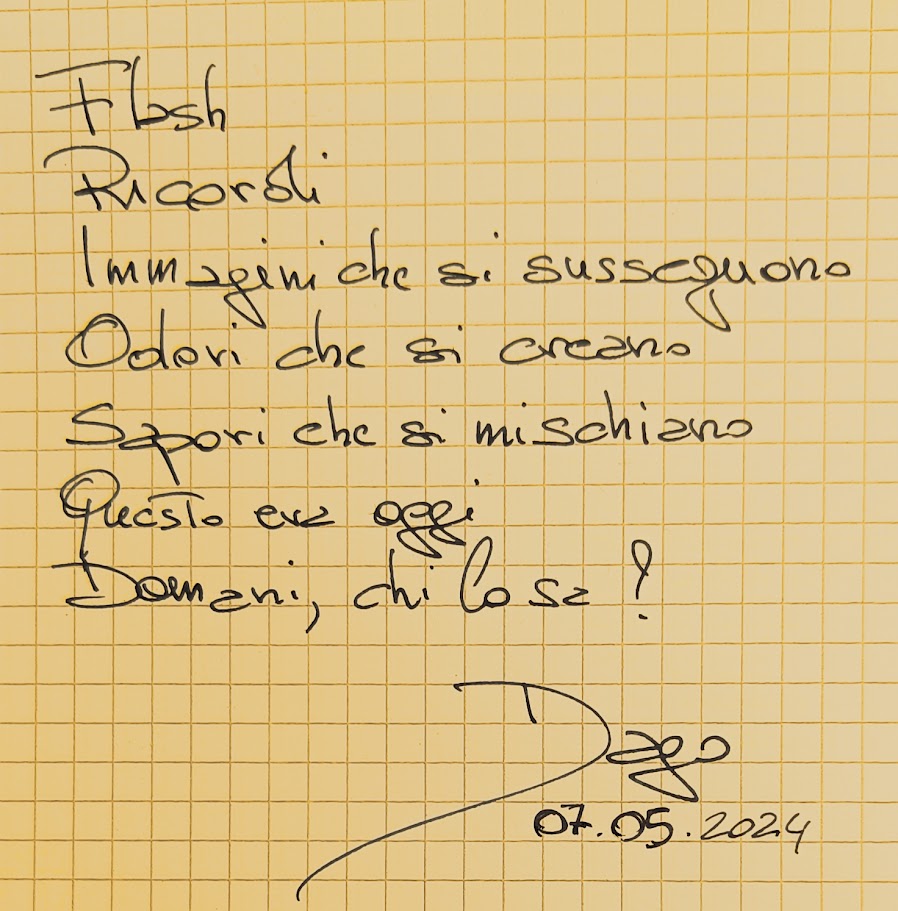 Flash
Ricordi
Immagini che si susseguono
Odori che si creano
Sapori che si mischiano
Questo era oggi
Domani, chi lo sa ?
Dago
07.05.2024